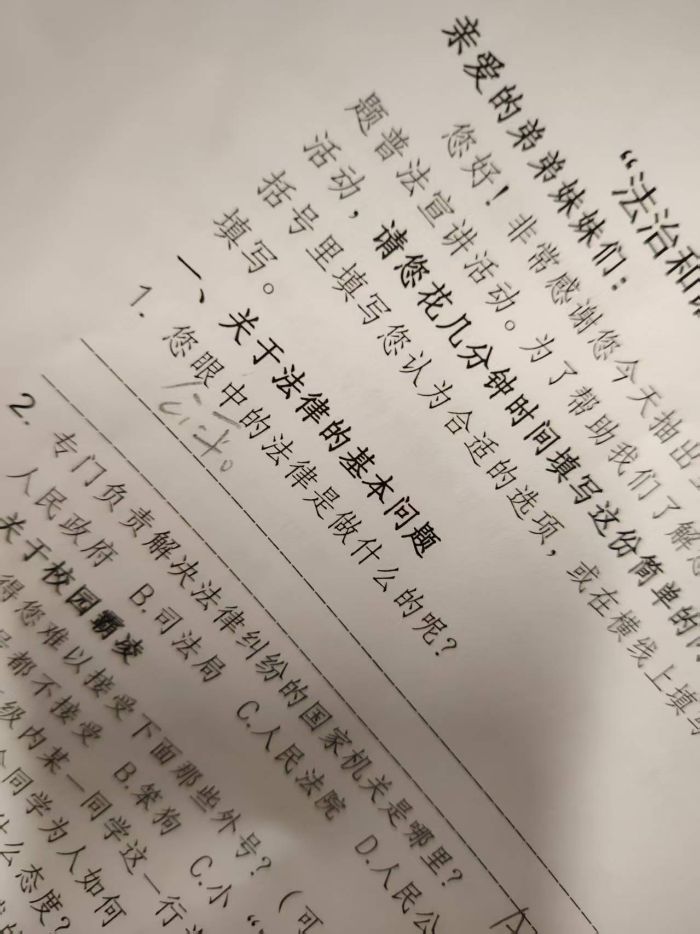 “法治和
亲爱的弟弟妹妹们：
您好！非常感谢您今天抽出
题普法宣讲活动。为了帮助我们了解
活动，请您花几分钟时间填写这份简单的问
括号里填写您认为合适的选项，或在横线上填写
填写。
一、关于法律的基本问题
1. 您眼中的法律是做什么的呢？
2. 专门负责解决法律纠纷的国家机关是哪里？
人民政府 B.司法局 C.人民法院 D.人民公
关于校园霸凌
得您难以接受下面那些外号？（可
都不接受 B.笨狗 C.小“
级内某一同学这一行
同学为人如何
什么态度？